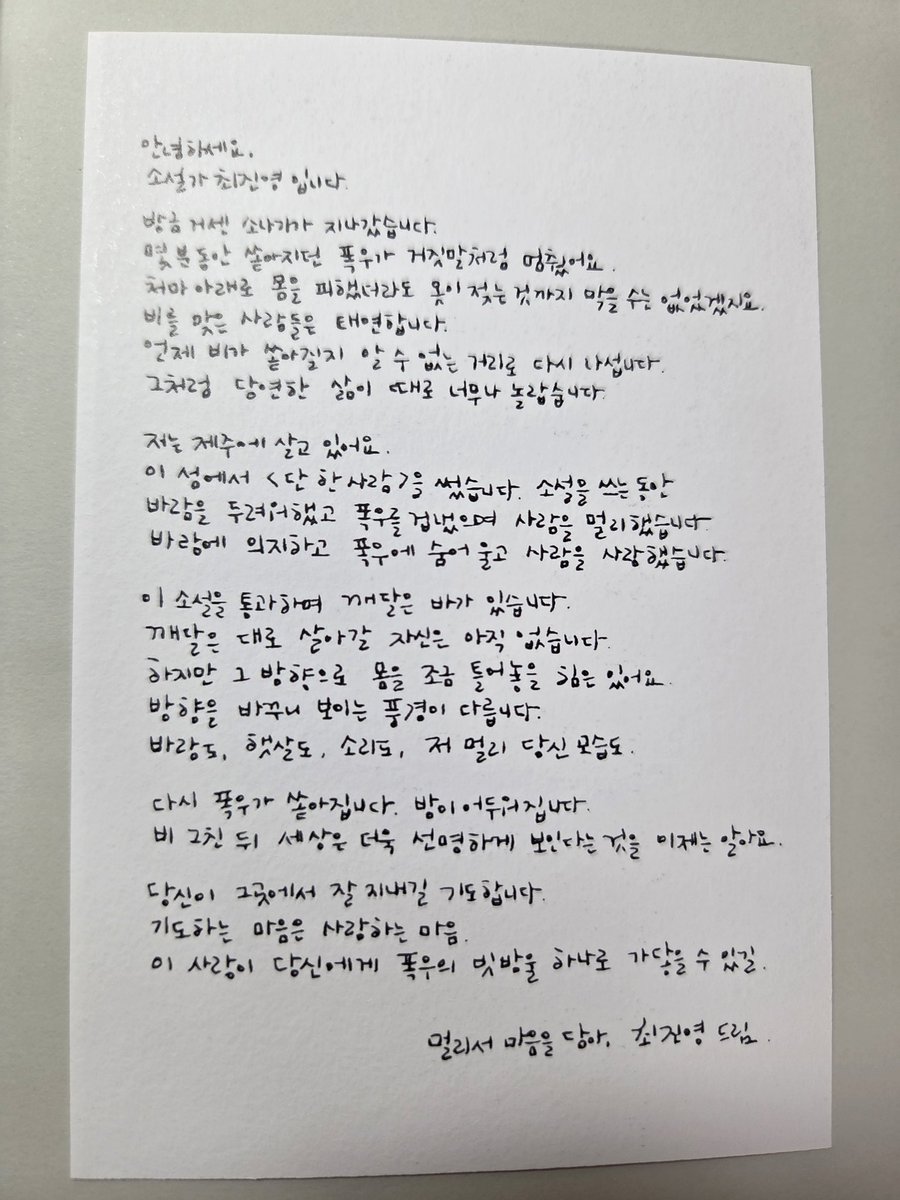 안녕하세요.
소설가 최진영입니다.
방금 거센 소나기가 지나갔습니다.
몇 분 동안 쏟아지던 폭우가 거짓말처럼 멈췄어요.
처마 아래로 몸을 피했더라도 옷이 젖는 것까지 막을 수는 없었겠지요.
비를 맞은 사람들은 태연합니다.
언제 비가 쏟아질지 알 수 없는 거리로 다시 나섭니다.
그처럼 당연한 삶이 때로 너무나 놀랍습니다.
저는 제주에 살고 있어요.
이 섬에서 <단 한 사람>을 썼습니다. 소설을 쓰는 동안
바람을 두려워했고 폭우를 겁냈으며 사람을 멀리했습니다.
바람에 의지하고 폭우에 숨어 울고 사람을 사랑했습니다.
이 소설을 통과하며 깨달은 바가 있습니다.
깨달은 대로 살아갈 자신은 아직 없습니다.
하지만 그 방향으로 몸을 조금 틀어놓을 힘은 있어요.
방향을 바꾸니 보이는 풍경이 다릅니다.
바람도, 햇살도, 소리도, 저 멀리 당신 모습도.
다시 폭우가 쏟아집니다. 방이 어두워집니다.
비 그친 뒤 세상은 더욱 선명하게 보인다는 것을 이제는 알아요.
당신이 그곳에서 잘 지내길 기도합니다.
기도하는 마음은 사랑하는 마음.
이 사랑이 당신에게 폭우의 빗방울 하나로 가닿을 수 있길.
멀리서 마음을 담아, 최진영 드림.